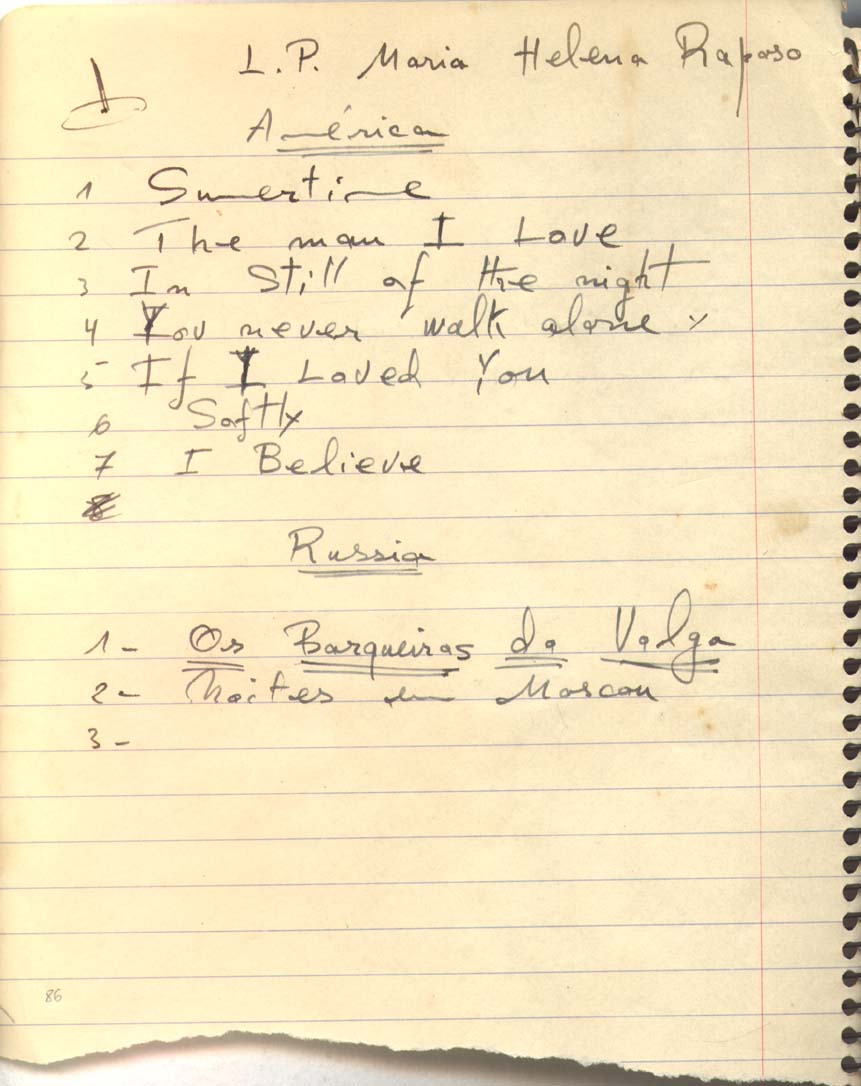 L.P. Maria Helena Raposo
América
1 Sumertime
2 The man I Love
3 In Still of the night
4 You never walk alone
5 If I Loved You
6 Softly
7 I Believe
8
Russia
1- Os Barqueiros do Volga
2- Noites em Moscou
3-
86